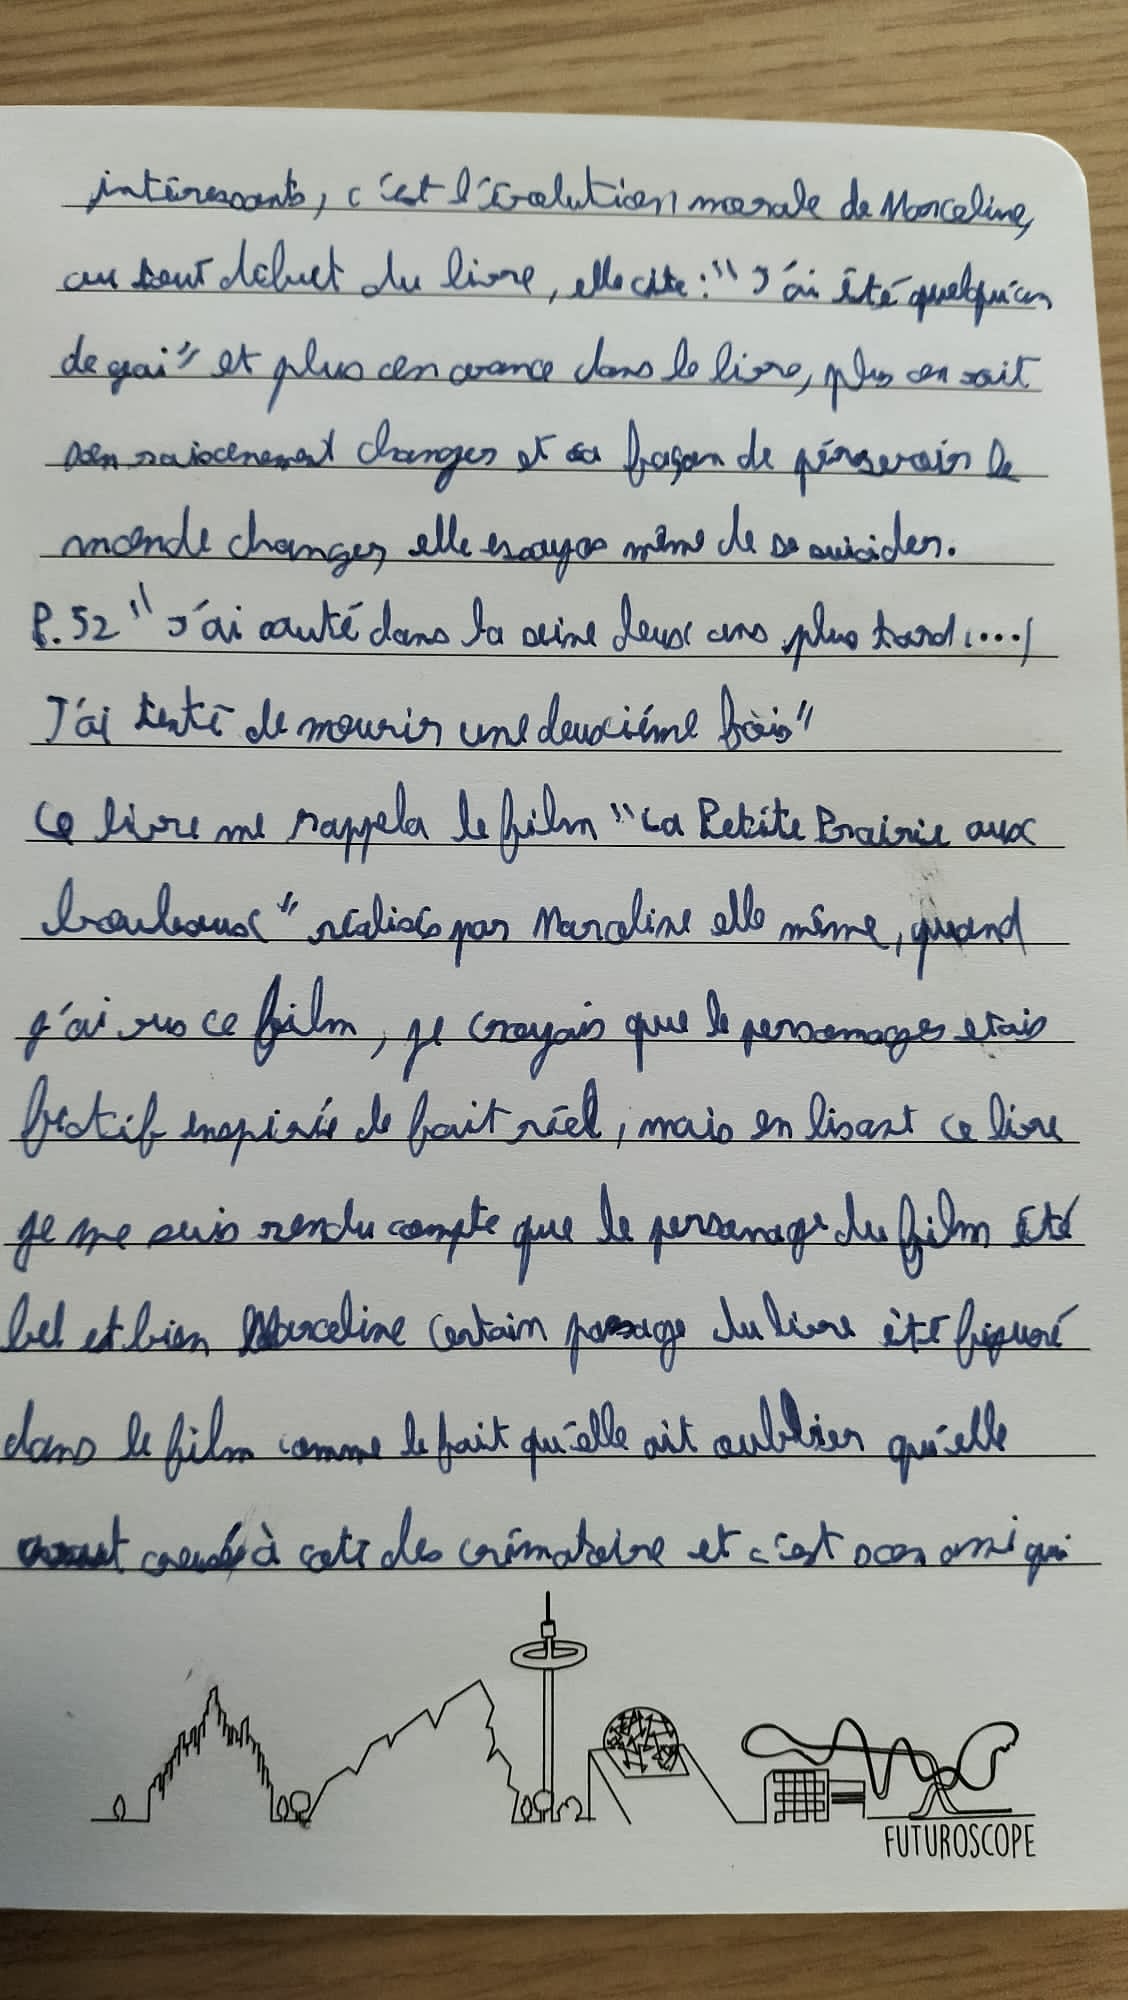 intéressants, c'est l'évolution morale de Marceline,
au tout début du livre, elle cite : "J'ai été quelqu'un
de gai" et plus on avance dans le livre, plus on voit
son raisonement changer et sa façon de persevoir le
monde changer, elle essayes même de se suicider.
P.52 "J'ai sauté dans la seine deux ans plus tard (...)
J'ai tenté de mourir une deuxiéme fois"
Ce livre me rappela le film "La Petite Prairie aux
bouleaux" réalisés par Marceline elle même, quand
j'ai vus ce film, je croyais que le personnages etais
fictif inspirée de fait réel, mais en lisant ce livre
je me suis rendu compte que le personage du film été
bel et bien Marceline certain passage du livre été figuré
dans le film comme le fait qu'elle ait oublier qu'elle
creusé à coté des crématoire et c'est son ami qui
FUTUROSCOPE